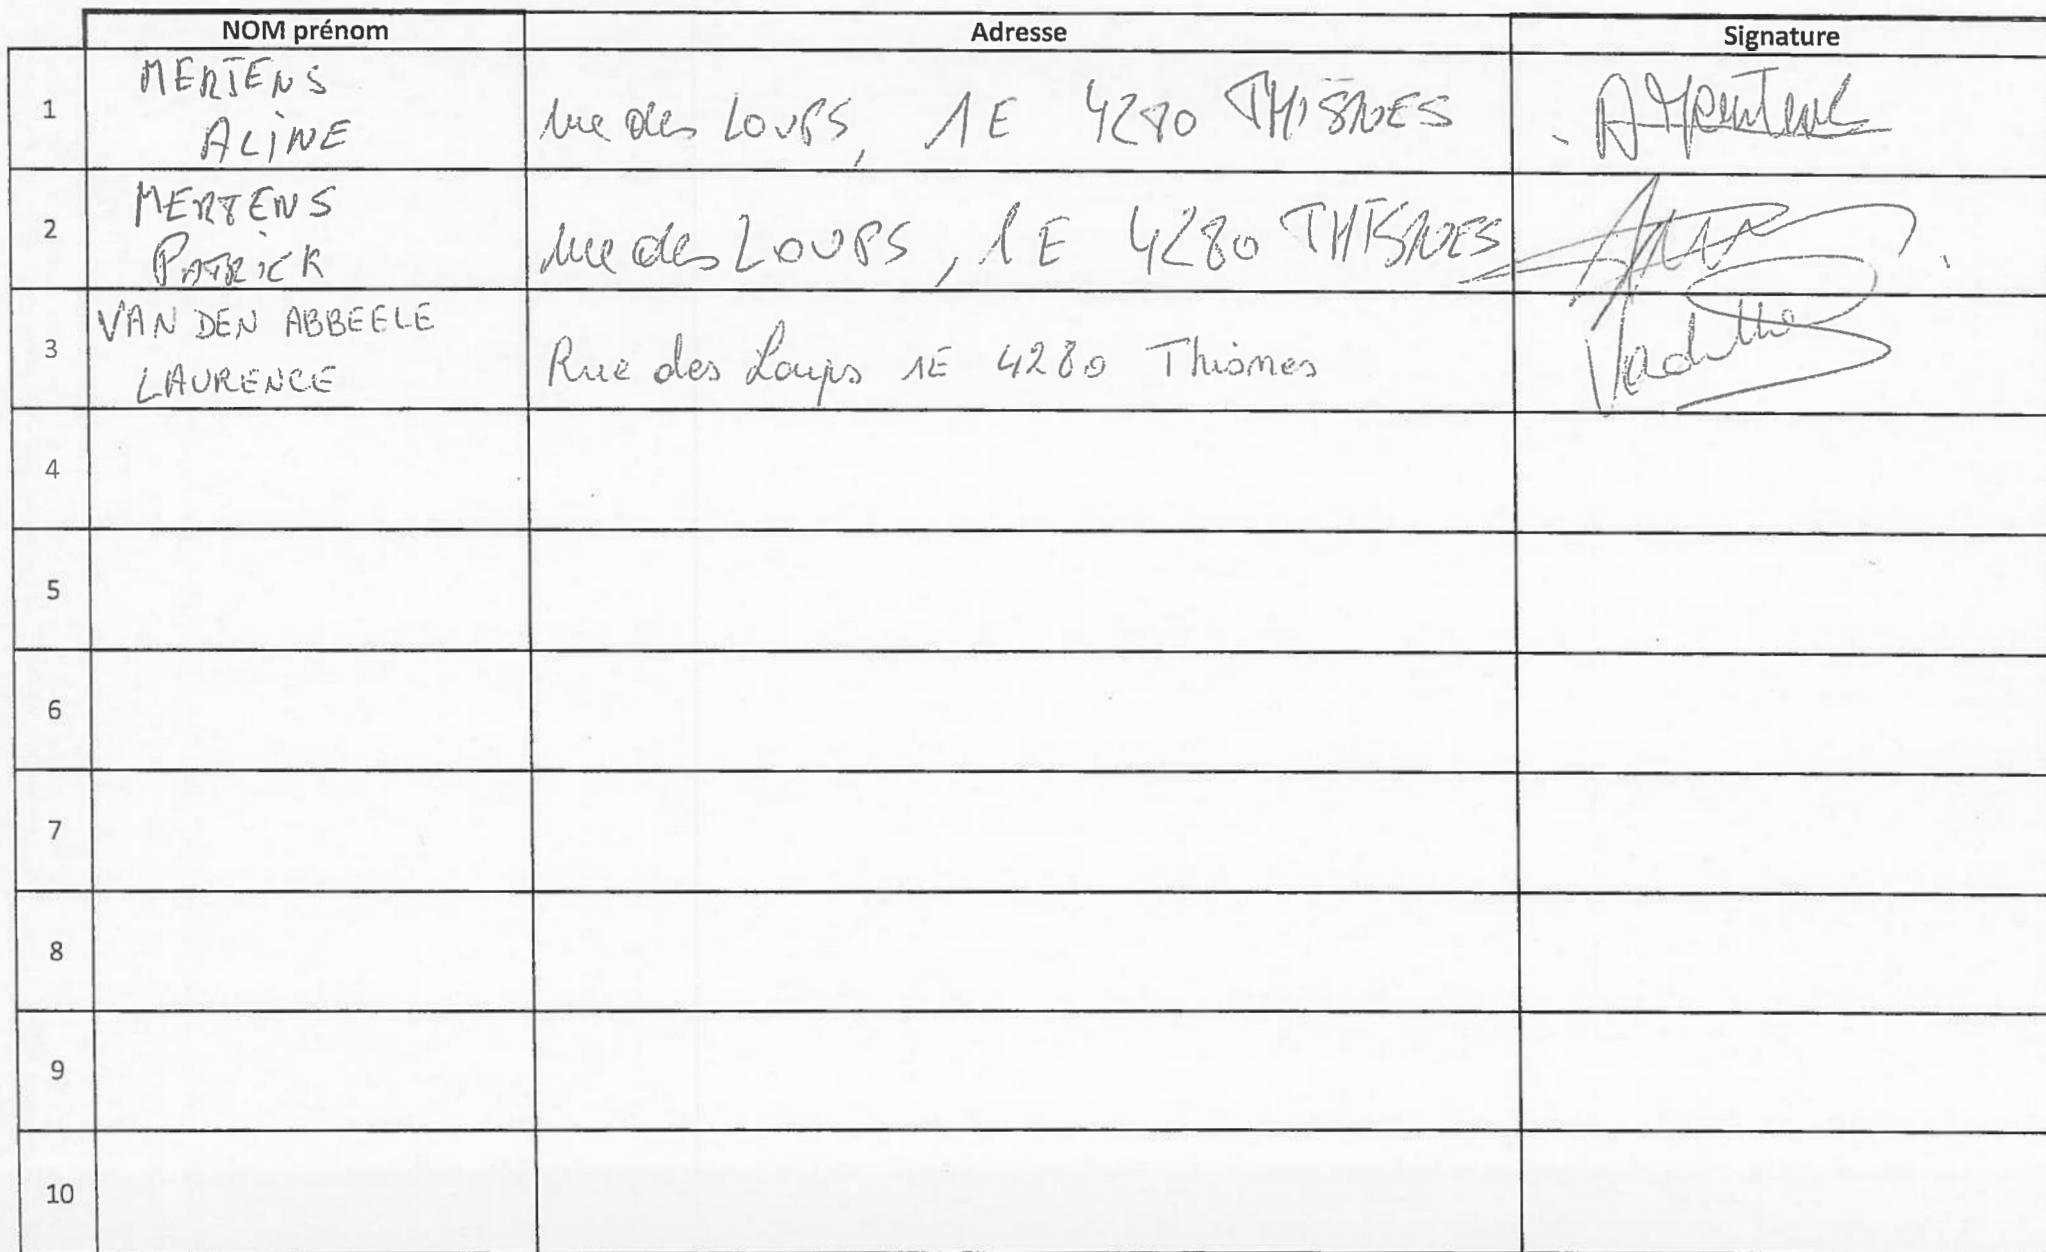 NOM prénom Adresse Signature
1 MERTENS ALINE rue des LOUPS, 1E 4280 THISNES
2 MERTENS PATRICK rue des LOUPS, 1E 4280 THISNES
3 VAN DEN ABBEELE LAURENCE Rue des Loups 1E 4280 Thisnes
4
5
6
7
8
9
10